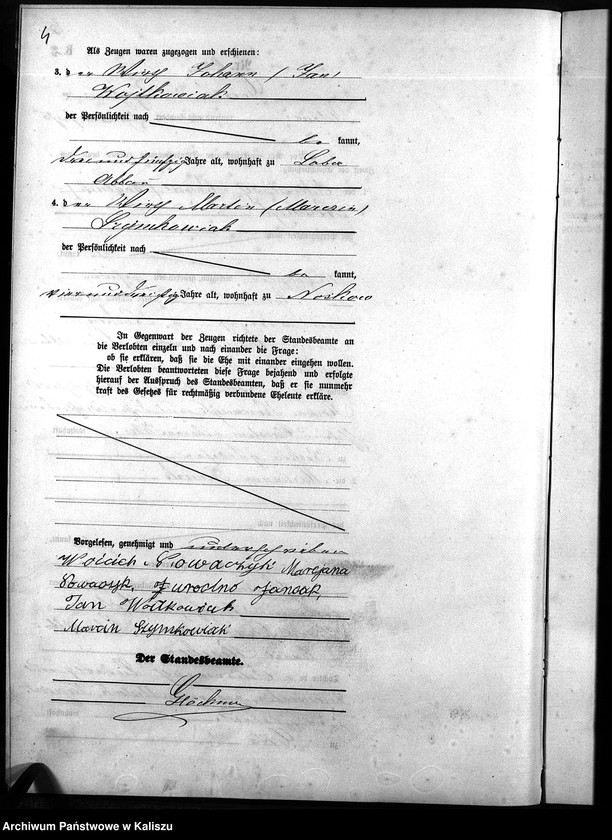 4
Als Zeugen waren zugezogen und erschienen:
3. der Wirth Johann (Jan)
Wojtkowiak
der Persönlichkeit nach
be kannt,
drei und fünfzig Jahre alt, wohnhaft zu
4. der Wirth Martin (Marcin)
Szymkowiak
der Persönlichkeit nach
be kannt,
vier und dreißig Jahre alt, wohnhaft zu Noskow
In Gegenwart der Zeugen richtete der Standesbeamte an
die Verlobten einzeln und nach einander die Frage:
ob sie erklären, daß sie die Ehe mit einander eingehen wollen.
Die Verlobten beantworteten diese Frage bejahend und erfolgte
hierauf der Ausspruch des Standesbeamten, daß er sie nunmehr
kraft des Gesetzes für rechtmäßig verbundene Eheleute erkläre.
Vorgelesen, genehmigt und unterschrieben
Woicich Nowaczyk Marejana
Nowaczyk, urodno
Jan Wodkowiak
Marcin Szymkowiak
Der Standesbeamte.
Archiwum Państwowe w Kaliszu